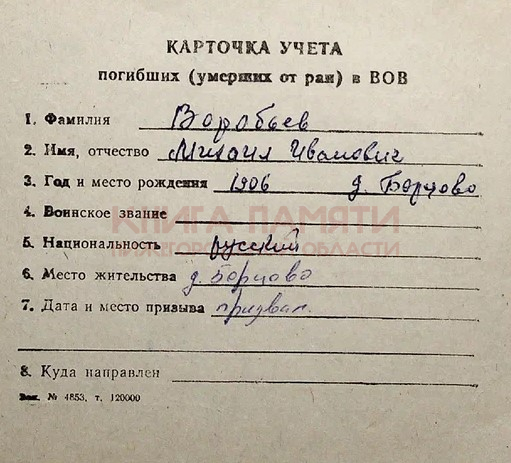 КАРТОЧКА УЧЕТА
погибших (умерших от ран) в ВОВ
1. Фамилия Воробьев
2. Имя, отчество Михаил Иванович
3. Год и место рождения 1906 д. Борцово
4. Воинское звание
КНИГА ПАМЯТИ
5. Национальность русский
НИЖЕГОРОДСКОЙ ОБЛАСТИ
6. Место жительства д. Борцово
7. Дата и место призыва призван.
8. Куда направлен
Зак. № 4853, т. 120000